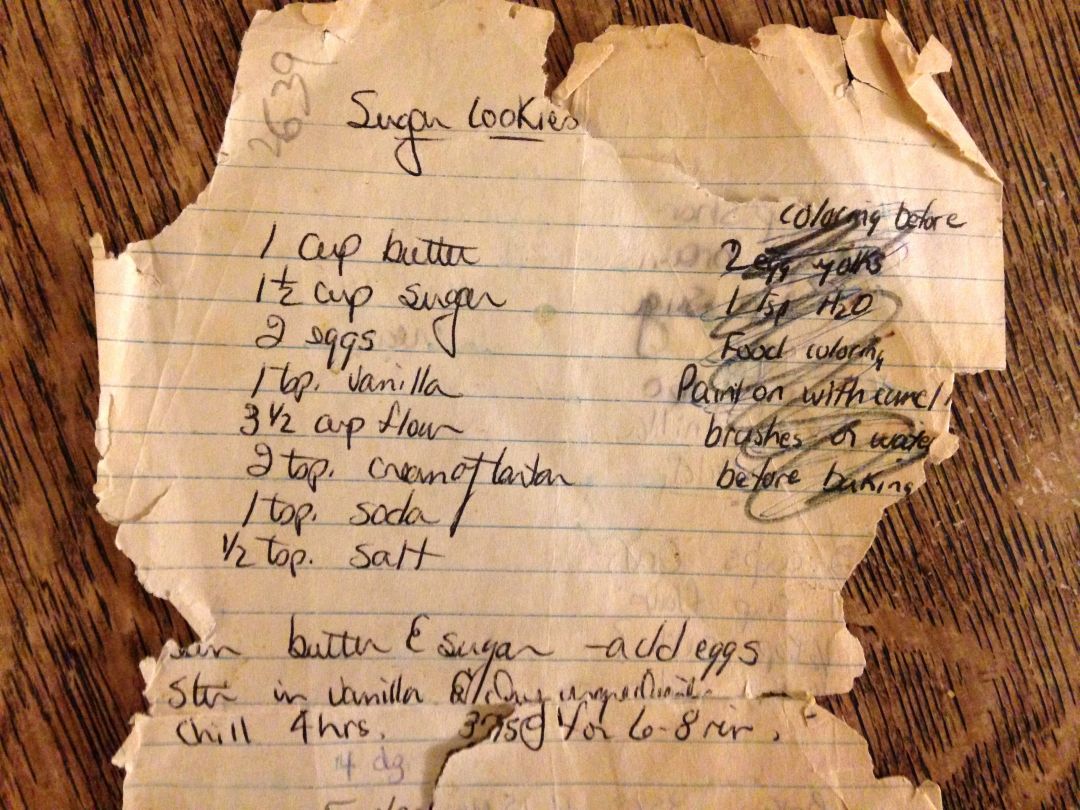 2639
Sugar Cookies
1 cup butter
1 1/2 cup sugar
2 eggs
1 tsp. vanilla
3 1/2 cup flour
2 tsp. cream of tartar
1 tsp. soda
1/2 tsp. salt
coloring before
2 egg yolks
1 tsp H2O
Food coloring
Paint on with
brushes or water
before baking
butter & sugar - add eggs
Stir in vanilla & dry ingredients.
Chill 4 hrs. 375° for 6-8 min.
4 dz